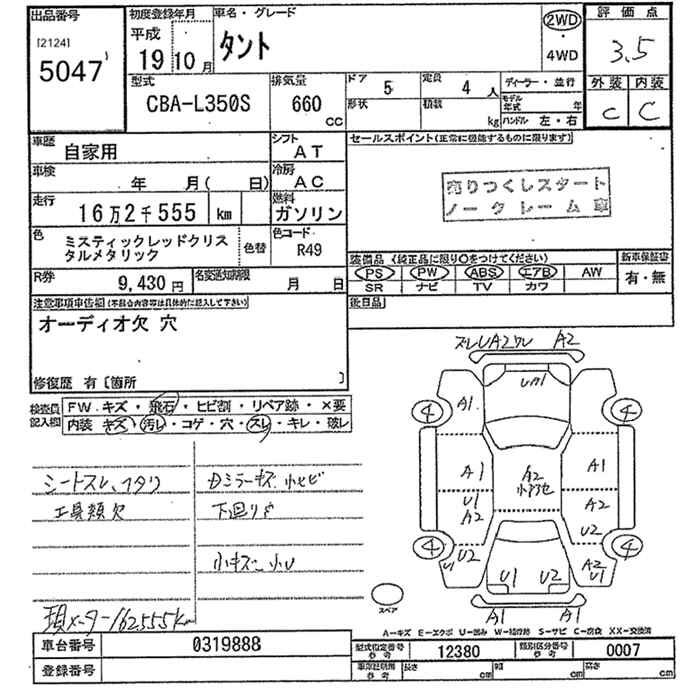 出品番号
[2124]
5047
初度登録年月
平成
19 10 月
車名・グレード
タント
2WD
・
4WD
評価点
3.5
型式
CBA-L350S
排気量
660
cc
ドア 5
定員 4 人
ディーラー・並行
形状
積載 kg
モデル年式 年
ハンドル 左・右
外装 内装
C C
車歴 自家用
シフト AT
車検 年 月( 日)
冷房 AC
走行 16万2千555 km
燃料 ガソリン
色 ミスティックレッドクリス
タルメタリック
色替
色コード R49
R券 9,430 円
名変通知期限 月 日
セールスポイント(正常に機能するものに限ります)
売りつくしスタート
ノークレーム車
装備品 (純正品に限り○をつけてください)
PS PW ABS エアB AW
SR ナビ TV カワ
新車保証書
有・無
後日品
注意事項申告欄(不具合内容等は具体的に記入して下さい)
オーディオ欠 穴
修復歴 有〔箇所 〕
検査員記入欄
FW.キズ・飛石・ヒビ割・リペア跡・×要
内装 キズ・汚レ・コゲ・穴・スレ・キレ・破レ
シートスレ、ヘタリ
工具類欠
Dミラーキズ 小ヒビ
下廻りサ
小キズ 小U
現メーター162555km
A2
A1
U1
A2
A1
A1
U1
A2
A2
A2
U2
U2
U1
U1
U2
A2
U1
A1
A1
4
4
4
4
スペア
A-キズ E-エクボ U-凹み W-補修跡 S-サビ C-腐食 XX-交換済
車台番号 0319888
登録番号
型式指定番号 参考 12380
類別区分番号 参考 0007
長さ cm
幅 cm
高さ cm